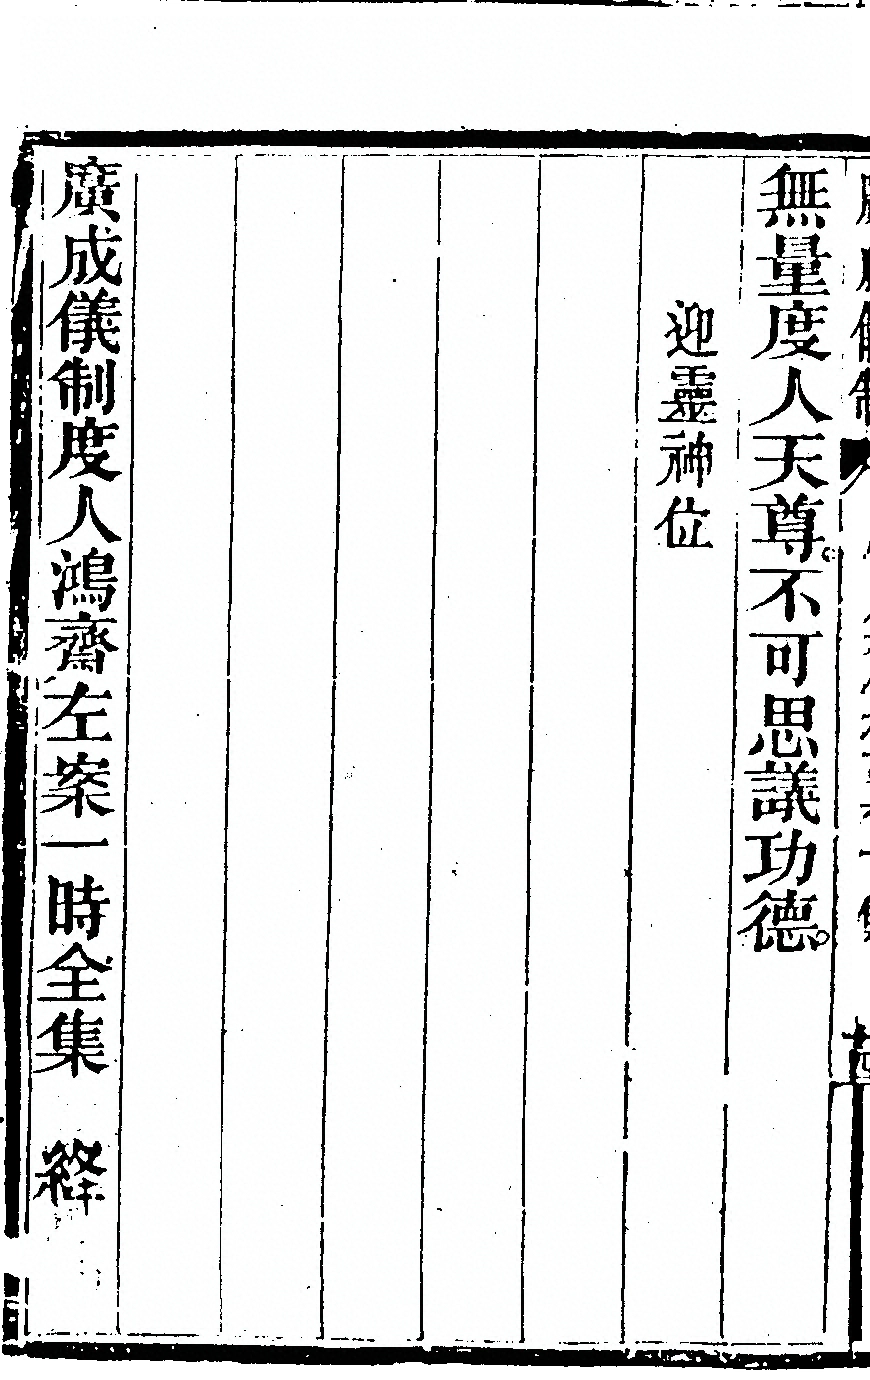 無量度人天尊。不可思議功德。
迎靈神位
廣成儀制度人鴻齋左案一時全集 終